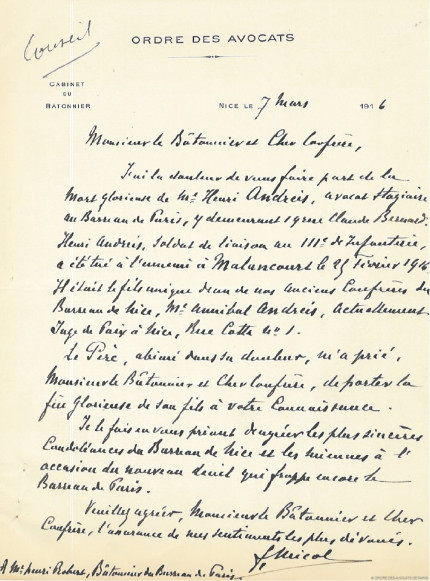 Conseil
ORDRE DES AVOCATS
CABINET
DU
BATONNIER
NICE LE 7 Mars 1916
Monsieur le Bâtonnier et Cher Confrère,
J'ai la douleur de vous faire part de la
Mort glorieuse de Me Henri Andréis, avocat Stagiaire
au Barreau de Paris, y demeurant 19 rue Claude Bernard.
Henri Andréis, Soldat de liaison au 111e de Infanterie,
a été tué à l'ennemi à Malancourt le 25 Février 1916.
Il était le fils unique de un de nos anciens Confrères du
Barreau de Nice, Me Annibal Andréis, Actuellement
Juge de Paix à Nice, Rue Cotta no 1.
Le Père, abîmé dans sa douleur, m'a prié,
Monsieur le Bâtonnier et Cher Confrère, de porter la
fin Glorieuse de son fils à votre Connaissance.
Je le fais en vous priant d'agréer les plus sincères
Condoléances du Barreau de Nice et les miennes à l'
occasion du nouveau deuil qui frappe encore le
Barreau de Paris.
Veuillez agréer, Monsieur le Bâtonnier et Cher
Confrère, l'assurance de mes sentiments les plus dévoués.
A Me Henri Robert, Bâtonnier du Barreau de Paris.
© ORDRE DES AVOCATS DE PARIS